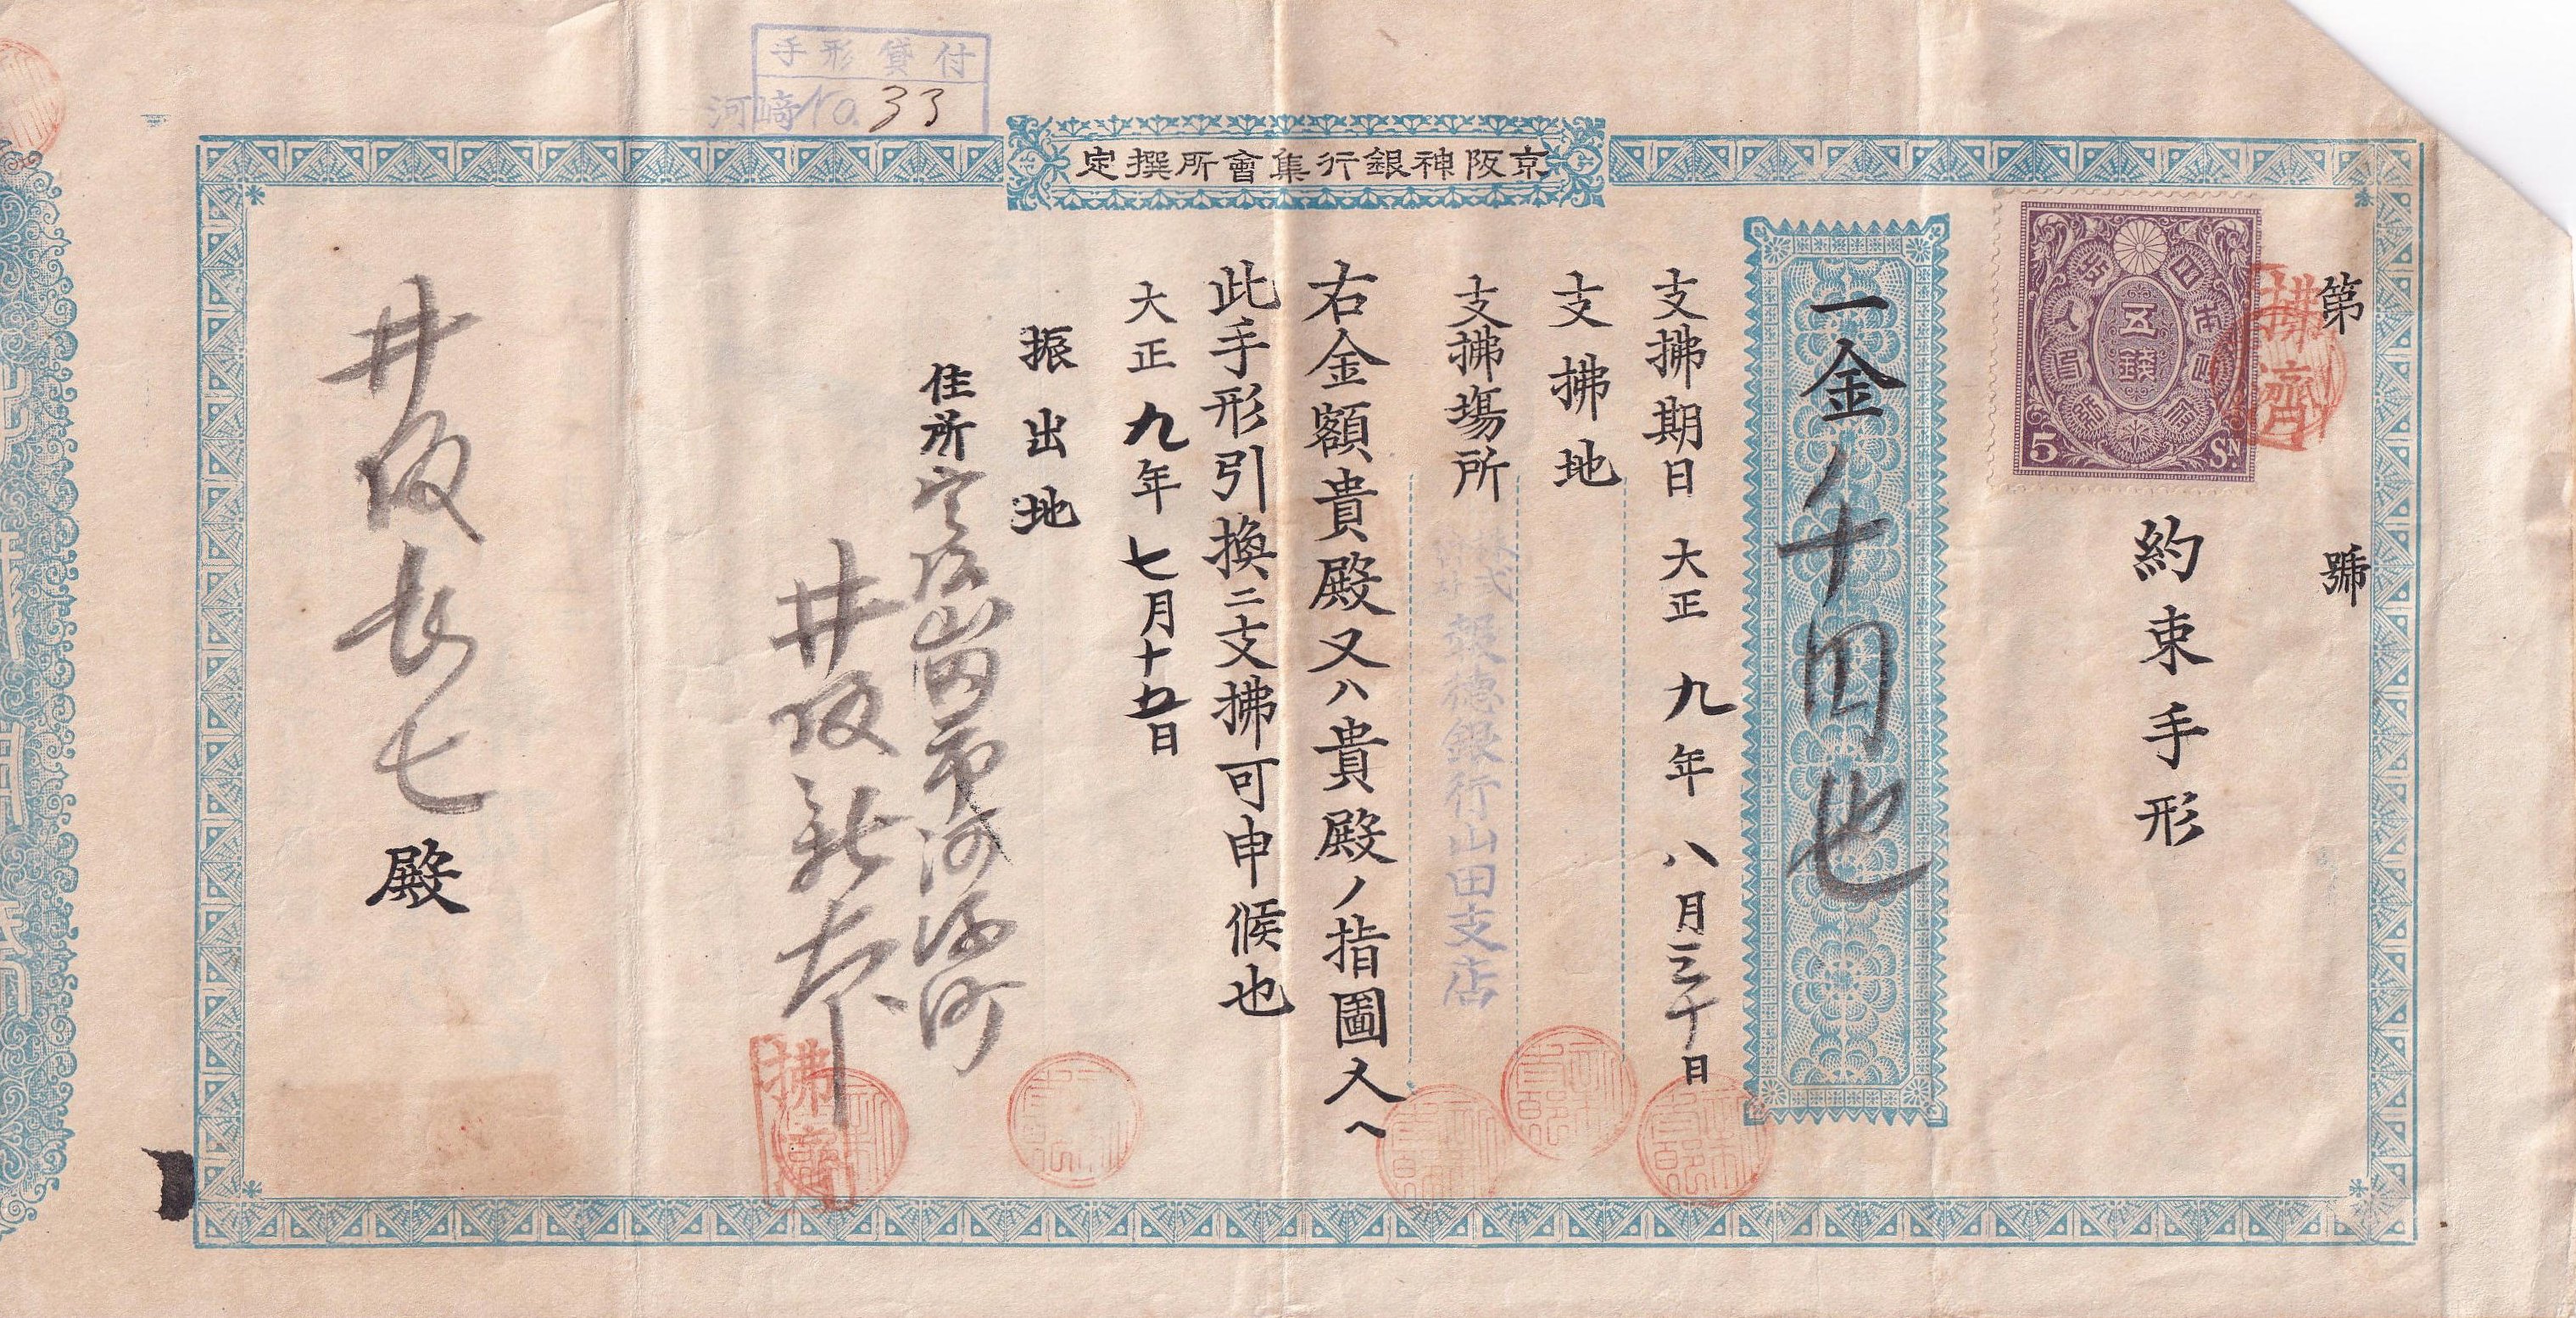 手形貸付
河崎No. 33
京阪神銀行集會所撰定
第　號
拂濟
日本帝國政府
五錢
5 Sn
約束手形
一金八千円也
支拂期日 大正九年八月三十日
支拂地
支拂塲所 株式會社報德銀行山田支店
右金額貴殿又ハ貴殿ノ指圖人ヘ
此手形引換ニ支拂可申候也
大正九年七月十五日
振出地
住所 山田市
井阪
拂濟
井阪長七殿